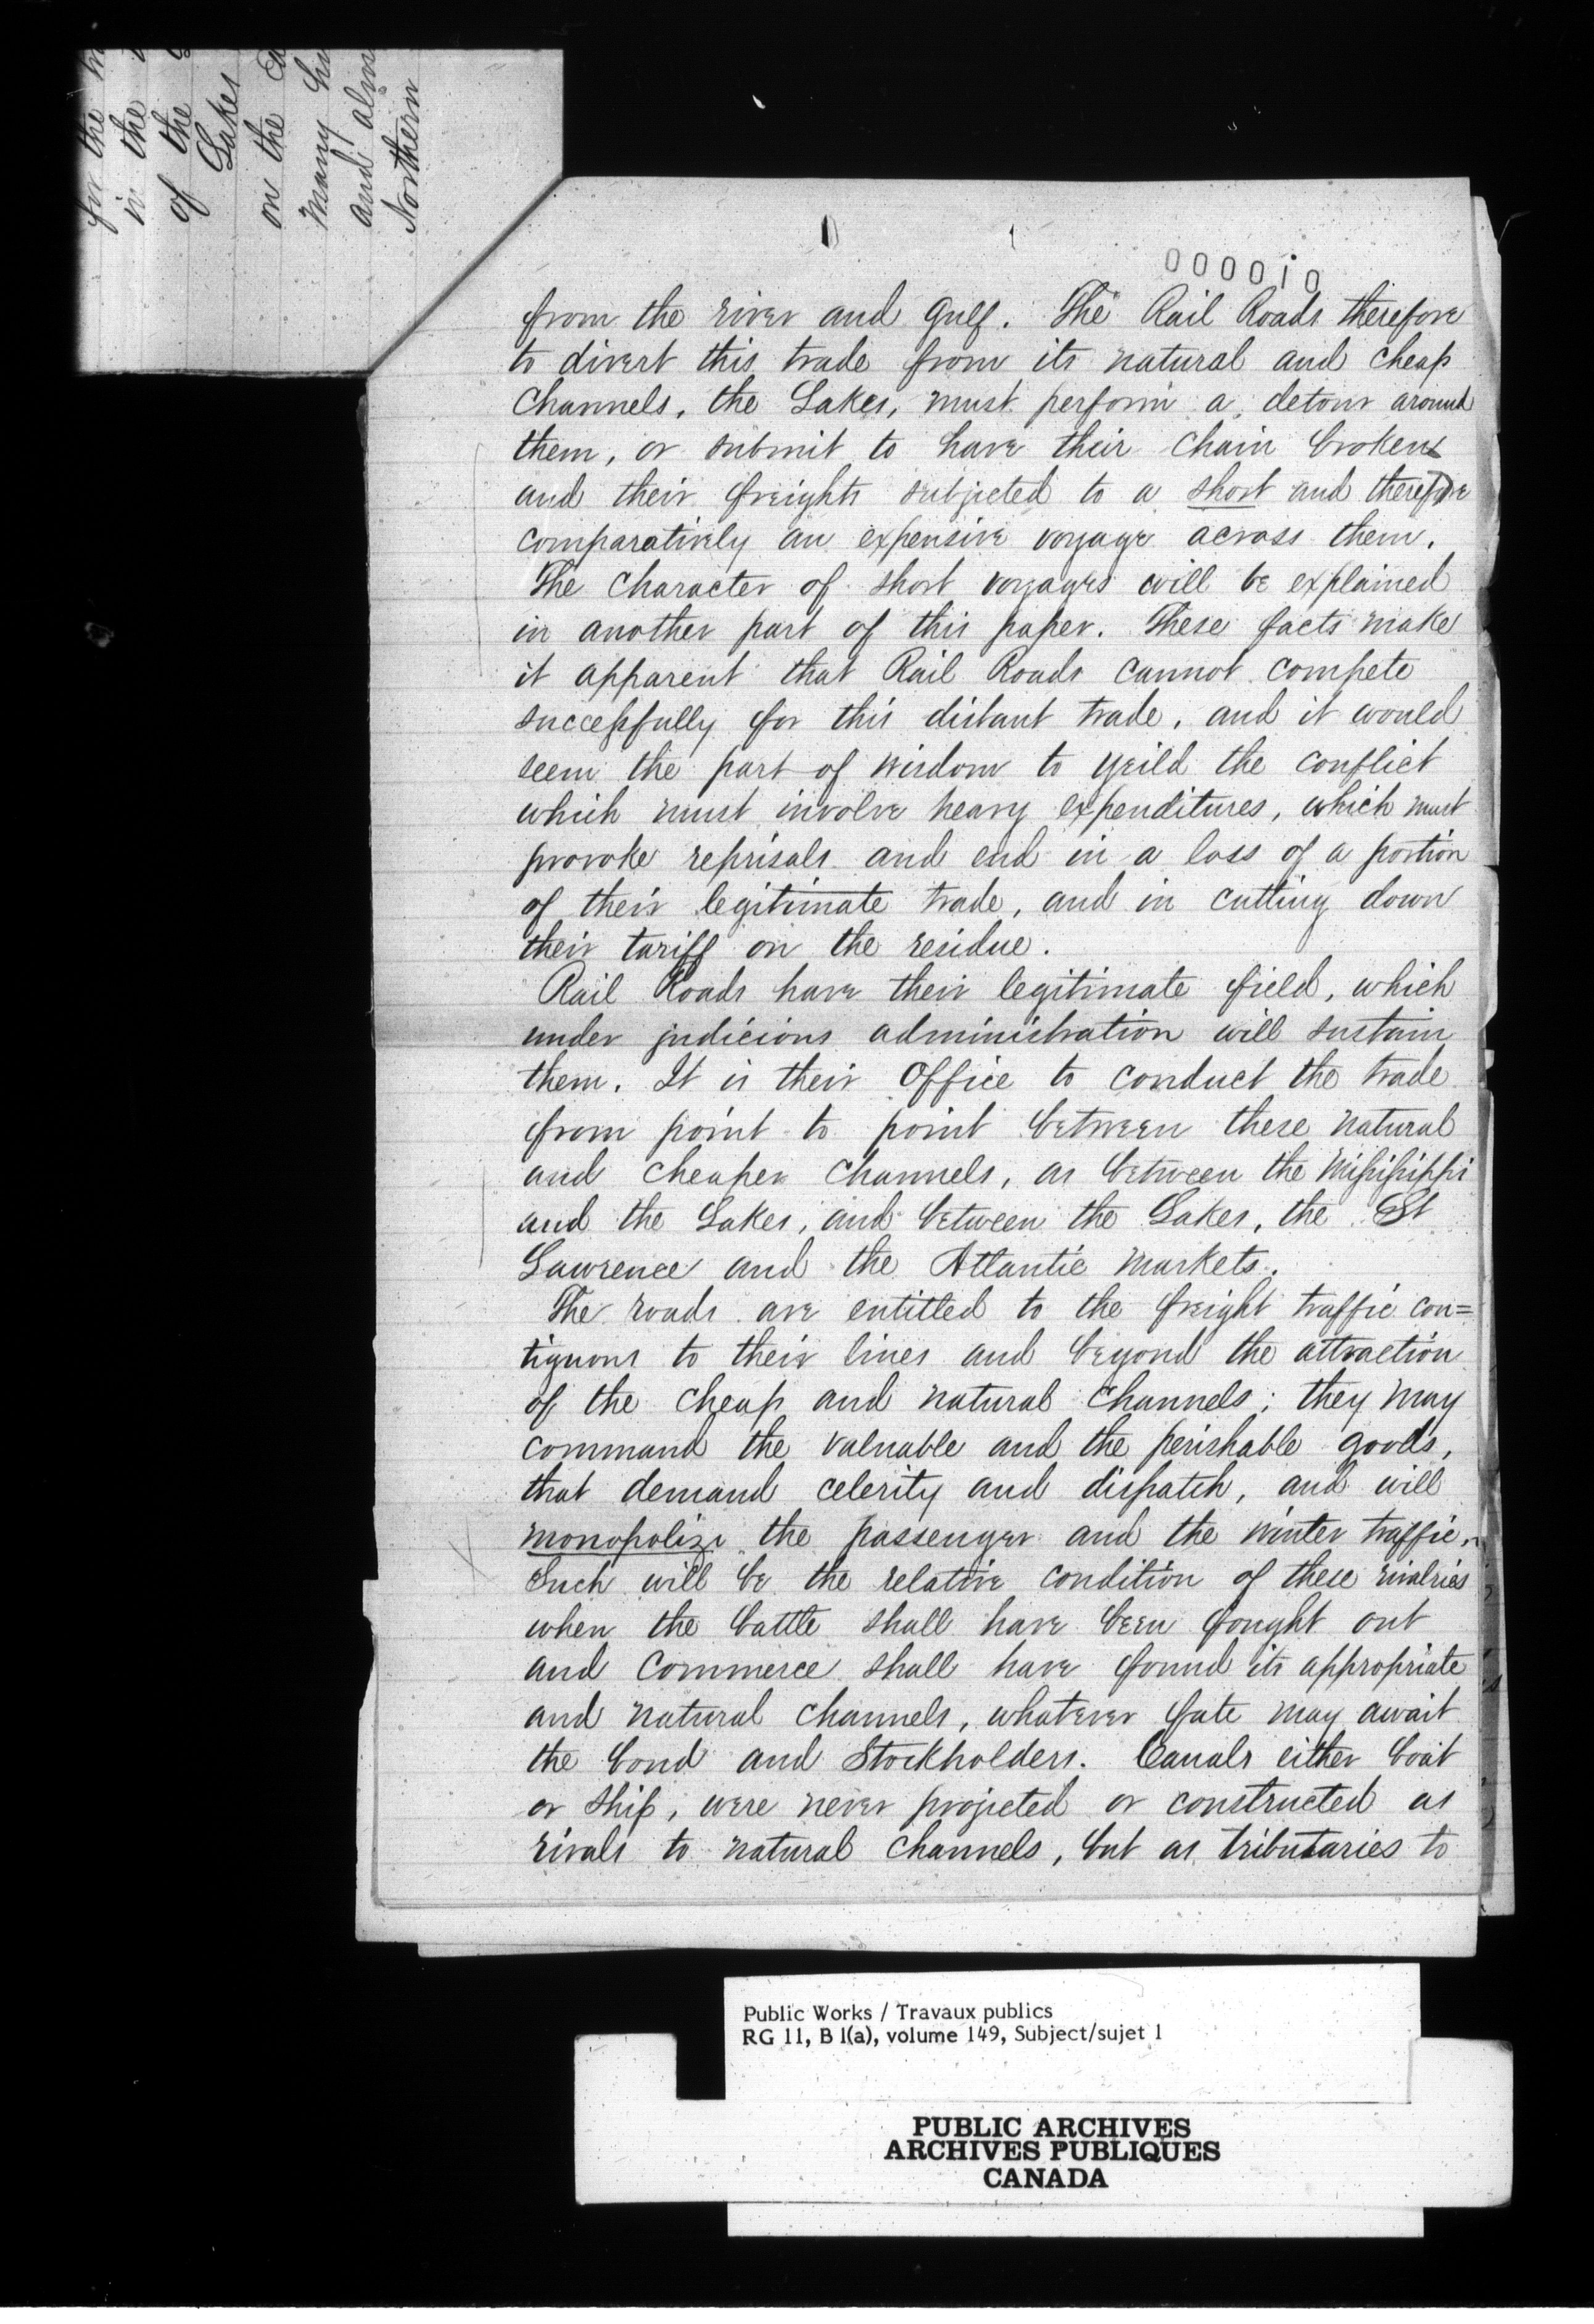 for the
in the
of the
Lakes
on the
many
and alm
Northern
000010
from the river and Gulf. The Rail Roads therefore
to divert this trade from its natural and cheap
Channels, the Lakes, must perform a detour around
them, or submit to have their chain broken
and their freights subjected to a short and therefore
comparatively an expensive voyage across them.
The character of short voyages will be explained
in another part of this paper. These facts make
it apparent that Rail Roads cannot compete
successfully for this distant trade, and it would
seem the part of wisdom to yeild the conflict
which must involve heavy expenditures, which must
provoke reprisals and end in a loss of a portion
of their legitimate trade, and in cutting down
their tariff on the residue.
Rail Roads have their legitimate field, which
under judicious administration will sustain
them. It is their Office to conduct the trade
from point to point between these natural
and cheaper channels, as between the Mississippi
and the Lakes, and between the Lakes, the St
Lawrence and the Atlantic Markets.
The roads are entitled to the freight traffic con=
tiguous to their lines and beyond the attraction
of the cheap and natural channels; they may
command the valuable and the perishable goods,
that demand celerity and dispatch, and will
monopolize the passenger and the winter traffic,
Such will be the relative condition of these rivalries
when the battle shall have been fought out
and Commerce shall have found its appropriate
and natural channels, whatever fate may await
the bond and Stockholders. Canals either boat
or ship, were never projected or constructed as
rivals to natural channels, but as tributaries to
Public Works / Travaux publics
RG 11, B 1(a), volume 149, Subject/sujet 1
PUBLIC ARCHIVES
ARCHIVES PUBLIQUES
CANADA